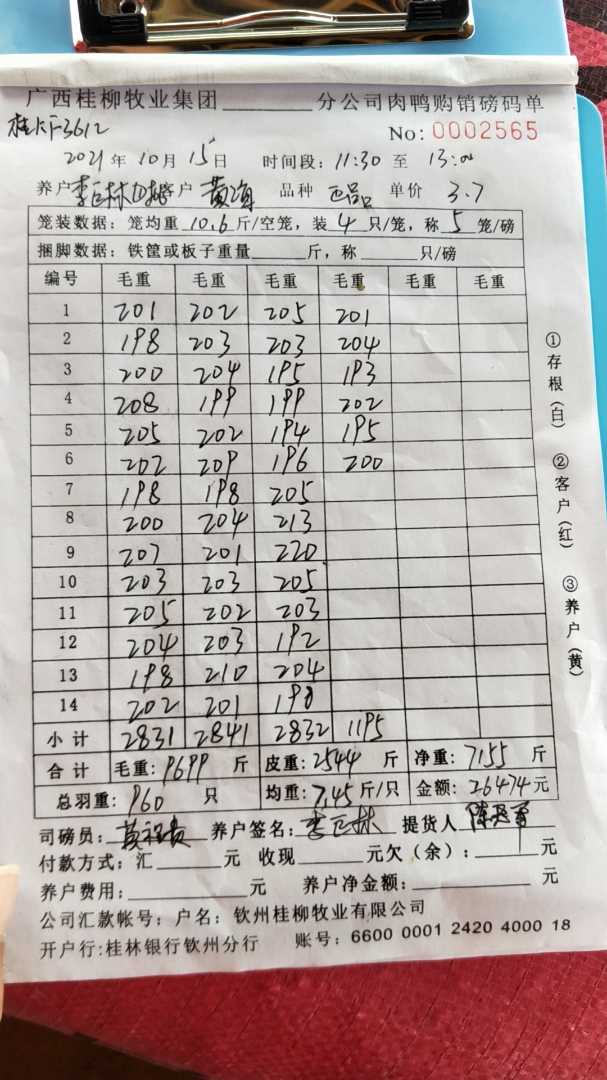 广西桂柳牧业集团______分公司肉鸭购销磅码单
3612
No: 0002565
2021年10月15日 时间段: 11:30 至 13:00
养户 李巨林 客户 黄海 品种 正品 单价 3.7
笼装数据: 笼均重 10.6 斤/空笼, 装 4 只/笼, 称 5 笼/磅
捆脚数据: 铁筐或板子重量______斤, 称______只/磅
编号 毛重 毛重 毛重 毛重 毛重 毛重
1 201 202 205 201
2 198 203 203 204
3 200 204 195 193
4 208 199 199 202
5 205 202 194 195
6 202 209 196 200
7 198 198 205
8 200 204 213
9 207 201 220
10 203 203 205
11 205 202 203
12 204 203 192
13 198 210 204
14 202 201 198
小计 2831 2841 2832 1195
合计 毛重: 9699 斤 皮重: 2544 斤 净重: 7155 斤
总羽重: 960 只 均重: 7.45 斤/只 金额: 26474元
司磅员: 养户签名: 李巨林 提货人
付款方式: 汇______元 收现______元欠(余): ______元
养户费用: ______元 养户净金额: ______元
公司汇款帐号: 户名: 钦州桂柳牧业有限公司
开户行: 桂林银行钦州分行 账号: 6600 0001 2420 4000 18
①存根(白) ②客户(红) ③养户(黄)